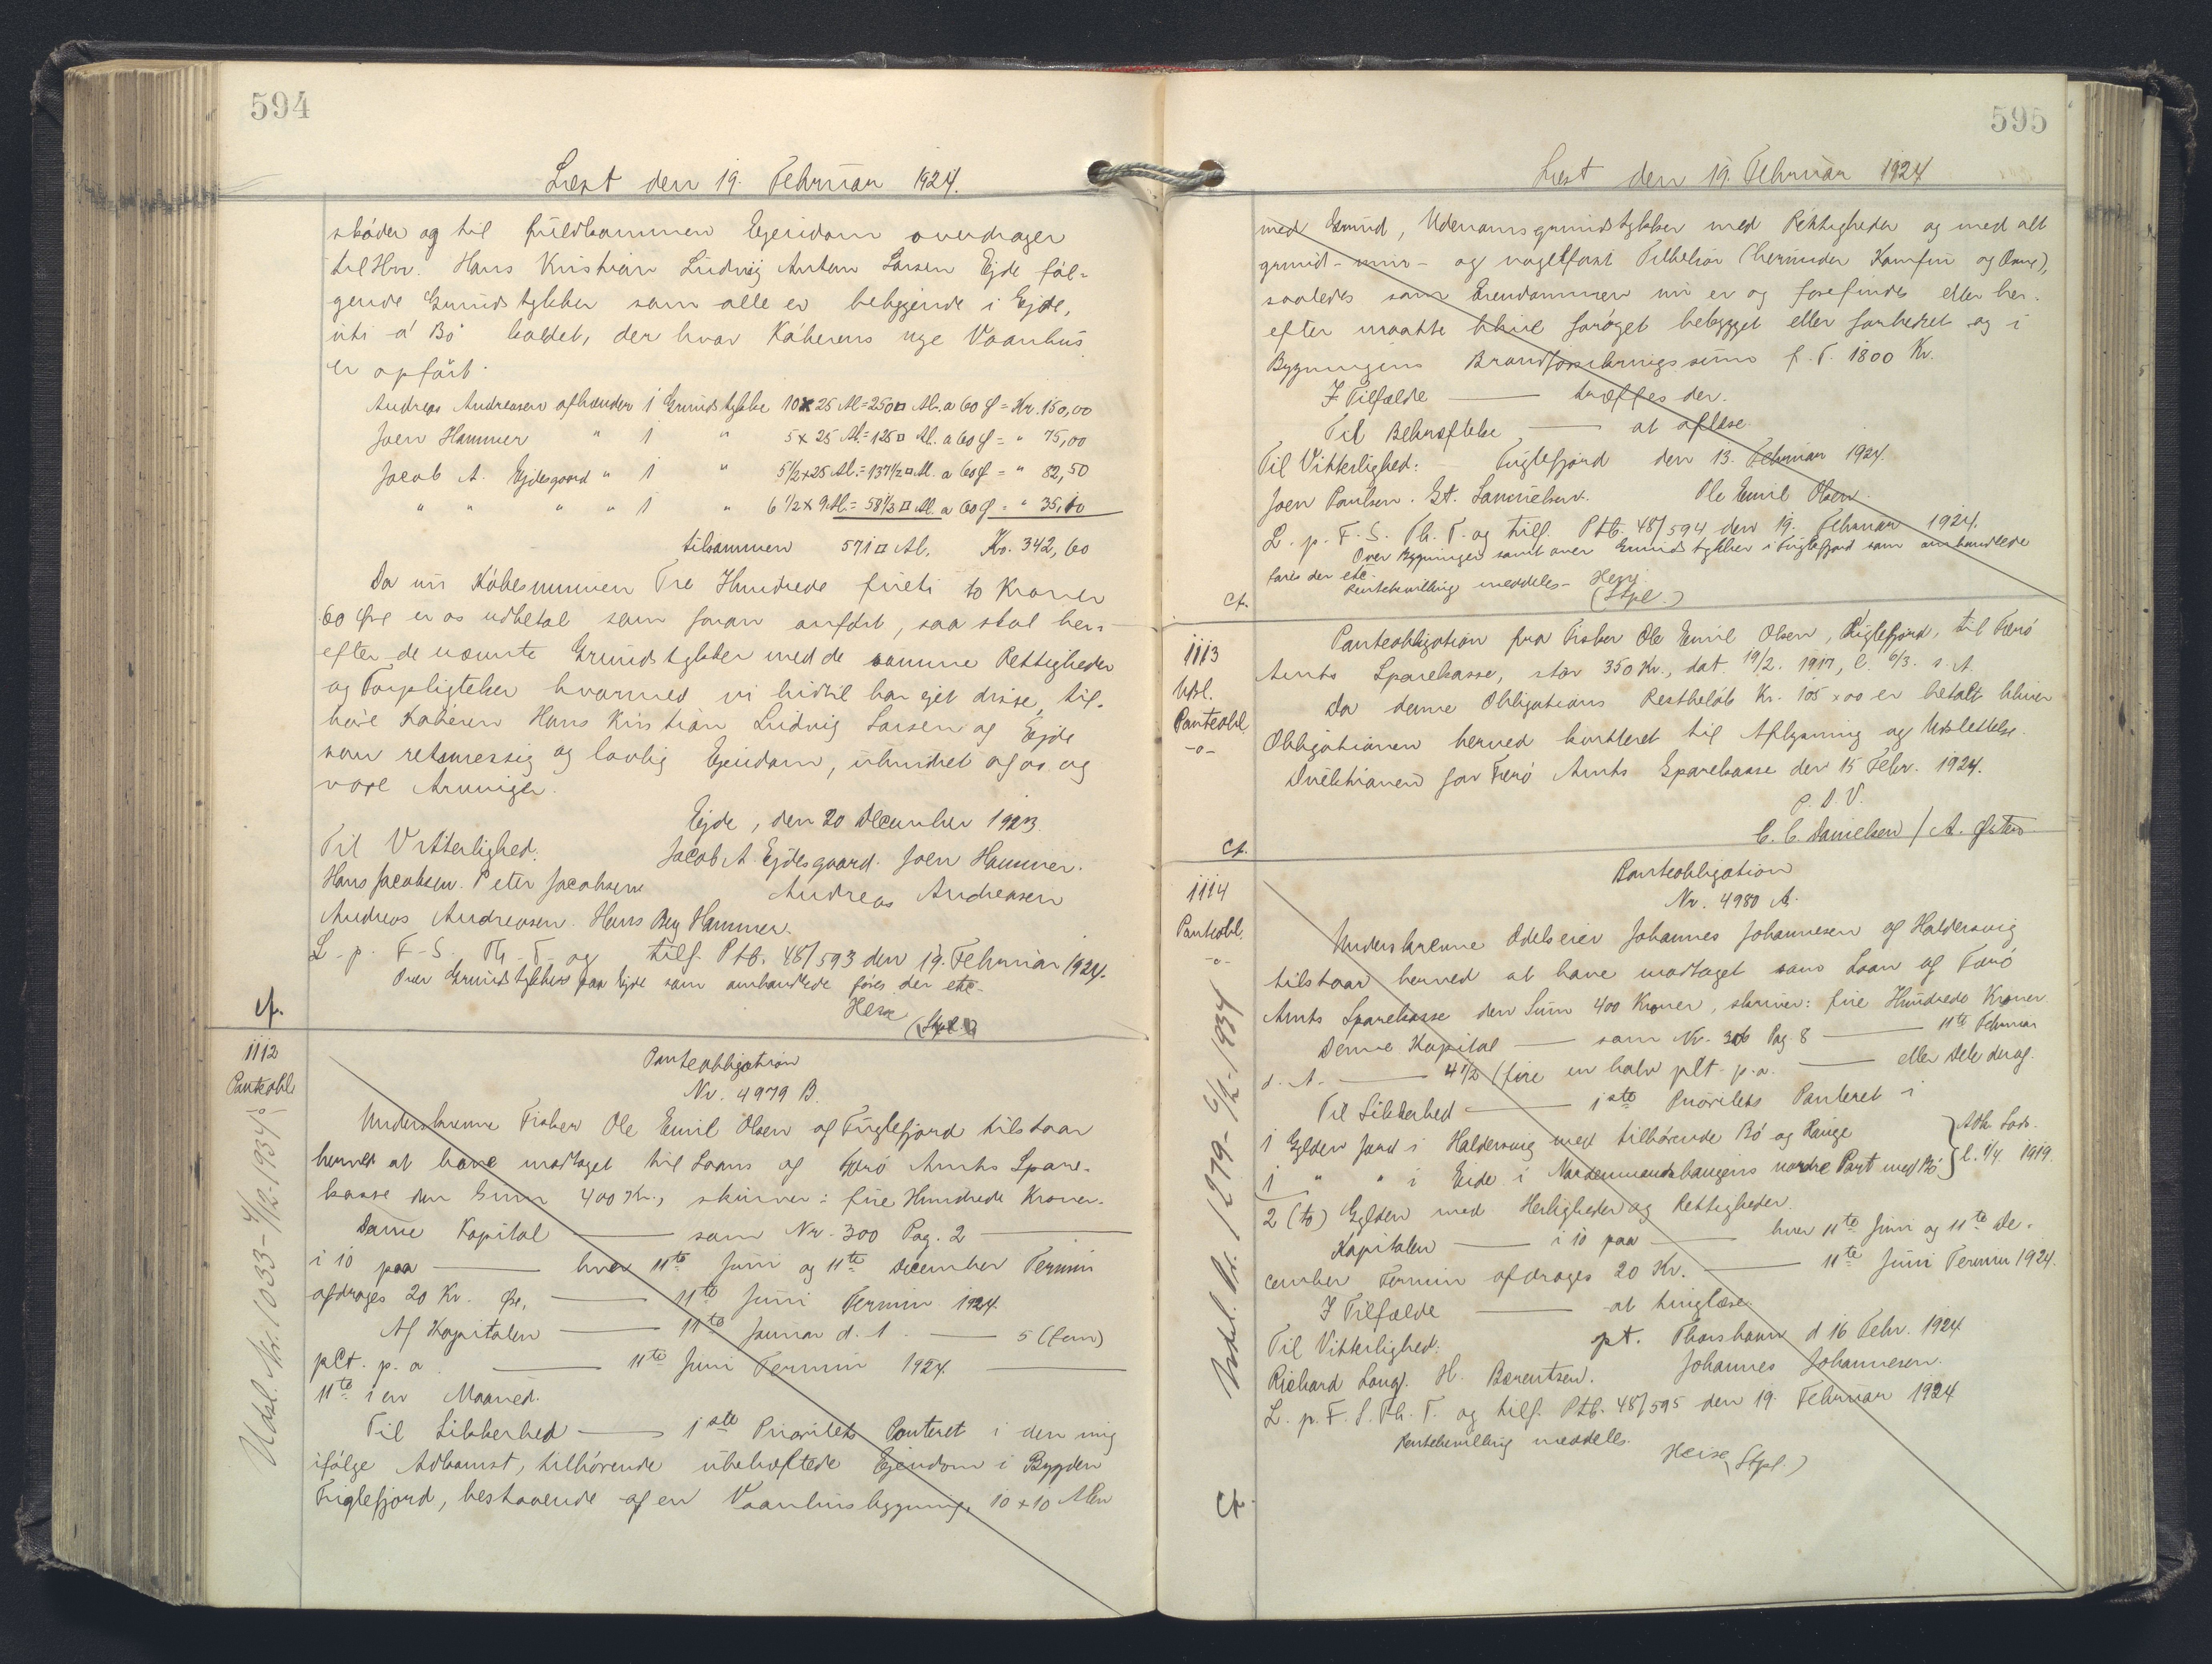 594
Læst den 19. Februar 1924.
skøder og til fuldkommen Ejendom overdrager
til Hrr. Hans Kristian Ludvig Anton Larsen Ejde føl-
gende Grundstykker som alle er beliggende i Ejde,
uti á Bö kaldet, der hvor Køberens nye Vaanhus
er opført.
Andreas Andreasen afhænder 1 Grundstykke 10 x 25 Al = 250 □ Al. a 60 Ø = Kr. 150,00
Joen Hammer " 1 " 5 x 25 Al. = 125 □ Al. a 60 Ø = " 75,00
Jacob A. Ejdesgaard " 1 " 5 1/2 x 25 Al. = 137 1/2 □ Al. a 60 Ø = " 82,50
" " " " 1 " 6 1/2 x 9 Al. = 58 1/2 □ Al. a 60 Ø = " 35,10
tilsammen 571 □ Al. Kr. 342,60
Da nu Købesummen Tre Hundrede fireti to Kroner
60 Øre er os udbetal som foran anført, saa skal her-
efter de nævnte Grundstykker med de samme Rettigheder
og Forpligtelser hvormed vi hidtil har ejet disse, til-
høre Køberen Hans Kristian Ludvig Larsen af Ejde
som retsmessig og lovlig Ejendom, uhindret af os og
vore Arvinger.
Ejde, den 20 December 1923.
Til Vitterlighed. Jacob A Ejdesgaard. Joen Hammer.
Hans Jacobsen. Peter Jacobsen Andreas Andreasen
Andreas Andreasen. Hans Berg Hammer.
L. p. F. S. Th. T. og tilf. Ptb. 48/593 den 19. Februar 1924.
Over Grundstykkers paa Ejde som omhandlede føres der etc.
cf. Heise (Stpl.)
1112
Panteobl
-o-
Panteobligation
Nr. 4979 B.
Underskrevne Fisker Ole Emil Olsen af Fuglefjord tilstaar
herved at have modtaget til Laans af Færö Amts Spare-
kasse den Sum 400 Kr., skriver: fire Hundrede Kroner.
Denne Kapital — som Nr. 300 Pag. 2 —
i 10 paa — hver 11te Juni og 11te December Termin
afdrages 20 Kr. Øre, — 11te Juni Termin 1924.
Af Kapitalen — 11te Januar d. A. — 5 (fem)
pCt. p. a. — 11te Juni Termin 1924. —
11te i en Maaned.
Til Sikkerhed — 1ste Prioritets Panteret i den mig
ifølge Adkomst, tilhørende ubehæftede Ejendom i Bygden
Fuglefjord, bestaaende af en Vaanhusbygning, 10 x 10 Alen
Udsl. Nr. 1033 - 4/12. 1934
595
Læst den 19. Februar 1924
med Grund, Udenomsgrundstykker med Rettigheder og med alt
grund- mur- og nagelfast Tilbehør (herunder Komfur og Ovne),
saaledes som Eiendommen nu er og forefindes eller her-
efter maatte blive forøget bebygget eller forbedret og i
Bygningens Brandforsikringssum f. T. 1800 Kr.
I Tilfælde — træffes der.
Til Bekræftelse — at aflæse.
Til Vitterlighed: Fuglefjord den 13. Februar 1924.
Joen Poulsen. St. Samuelsen. Ole Emil Olsen.
L. p. F. S. Th. T. og tilf. Ptb. 48/594 den 19. Februar 1924.
Over Bygningen samt over Grundstykker i Fuglefjord som omhandlede
føres der etc.
Rentebevilling meddeles. Heise
cf. (Stpl.)
1113
Udsl.
Panteobl
-o-
Panteobligation fra Fisker Ole Emil Olsen, Fuglefjord, til Færö
Amts Sparekasse, stor 350 Kr., dat. 19/2. 1917, l. 6/3. s. A.
Da denne Obligations Restbeløb Kr. 105 x 00 er betalt bliver
Obligationen herved kvitteret til Aflysning og Udslettelse.
Direktionen for Færö Amts Sparekasse den 15 Febr. 1924.
P. D. V.
cf. C. C. Danielsen / A. Østerø
1114
Panteobl.
-o-
Panteobligation
Nr. 4980 A.
Underskrevne Odelseier Johannes Johannesen af Haldersvig
tilstaar herved at have modtaget som Laan af Færö
Amts Sparekasse den Sum 400 Kroner, skriver: fire Hundrede Kroner.
Denne Kapital — som Nr. 306 Pag. 8 — 11te Februar
d. A. — 4 1/2 (fire en halv pCt. p. a. — eller Dele deraf.
Til Sikkerhed — 1ste Prioritets Panteret i
1 Gylden Jord i Haldersvig med tilhørende Bö og Hauge } Adk. Sk.
1 " " i Eide i Nordenmandshaugens nordre Part med Bö } l. 1/4 1919.
2 (to) Gylden med Herligheder og Rettigheder.
Kapitalen — i 10 paa — hver 11te Juni og 11te De-
cember Termin afdrages 20 Kr. — 11te Juni Termin 1924.
I Tilfælde — at tinglæse.
Til Vitterlighed: pt. Thorshavn d 16 Febr. 1924
Richard Long. H. Børentsen. Johannes Johannesen.
L. p. F. S. Th. T. og tilf. Ptb. 48/595 den 19. Februar 1924
Rentebevilling meddeles.
Heise (Stpl.)
cf.
Udsl. Nr. 1279 - 4/12. 1934